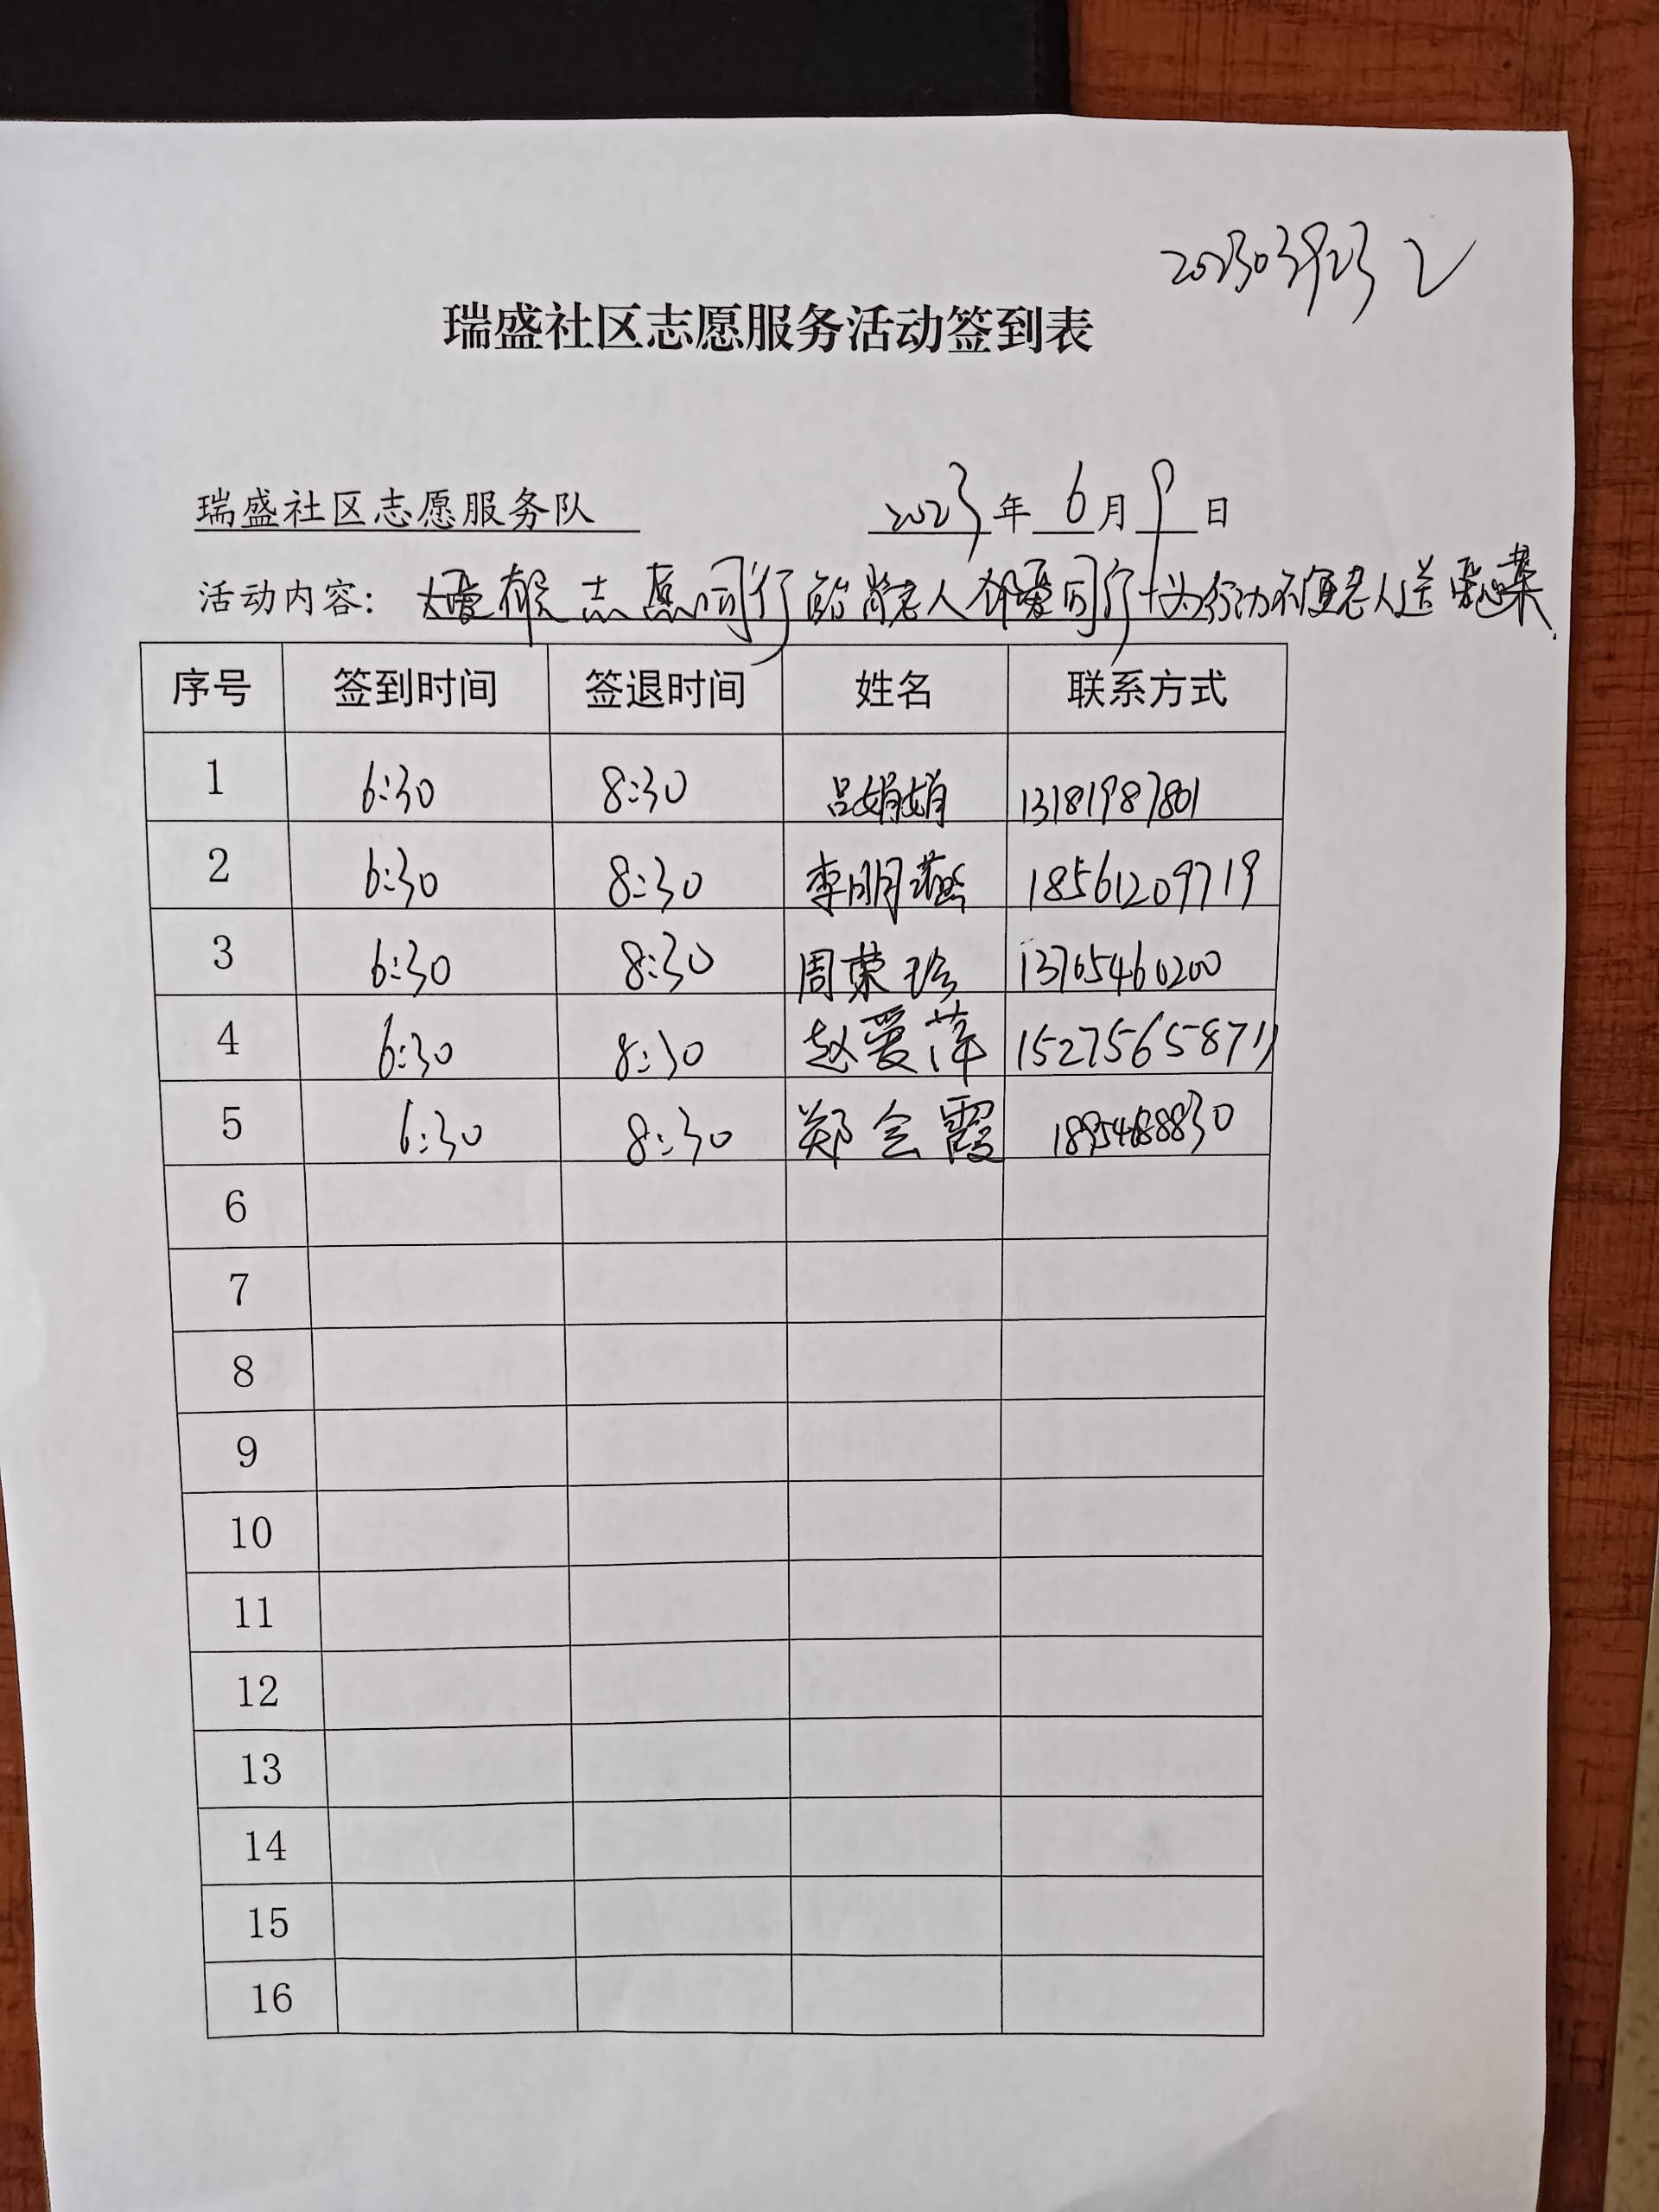 瑞盛社区志愿服务活动签到表
瑞盛社区志愿服务队 2023年6月9日
活动内容: 大爱有民 志愿同行 老人 爱同行 为行动不便老人送爱心菜.
序号 签到时间 签退时间 姓名 联系方式
1 6:30 8:30 吕娟娟 13181987801
2 6:30 8:30 李明燕 18561209719
3 6:30 8:30 周荣珍 13765460200
4 6:30 8:30 赵爱萍 15275658711
5 6:30 8:30 郑会霞
6
7
8
9
10
11
12
13
14
15
16